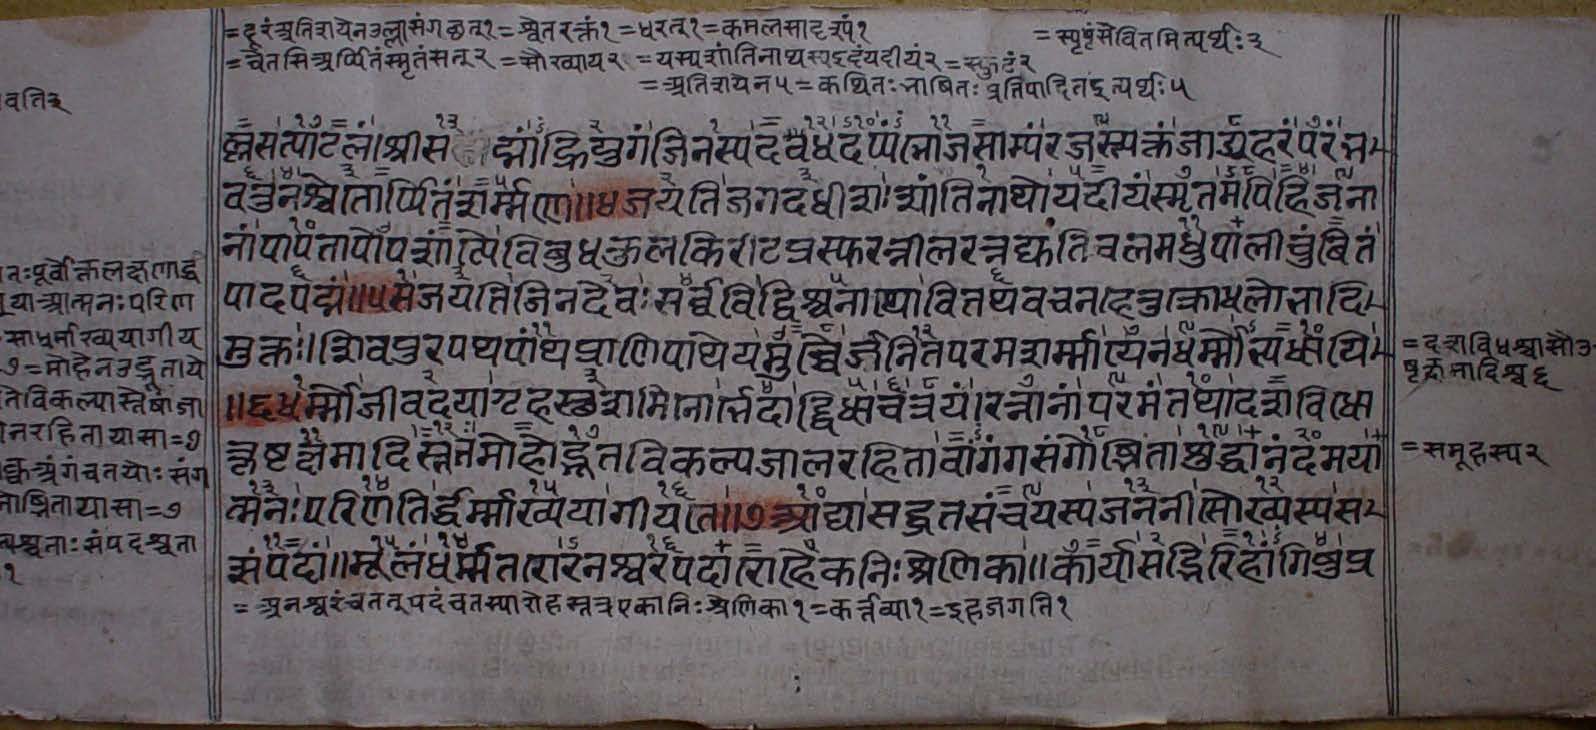 =दूरंअतिशयेनउल्लासंगछत्१=श्वेतरक्तं१=धरत्१=कमलसादृश्यं१ =स्पृष्टंसेवितमित्यर्थः३
=चेतसिअर्प्पितंस्मृतंसत्२=सौख्याय२ =यस्यशांतिनाथस्यइदंयदीयं२=स्फुटं२
=अतिशयेन५=कथितःभाषितःप्रतिपादितइत्यर्थः५
ल्लसत्पाटलं।श्रीसद्मांह्रियुगंजिनस्यदधदप्यंभोजसाम्यंरजस्त्यक्तंजाड्यहरंपरंभ
वतुनश्चेतोर्प्पितंशर्म्मणे॥४जयतिजगदधीशःशांतिनाथोयदीयंस्मृतमपिहिजना
नांपापतापोपशांत्यै।विबुधकुलकिरीटप्रस्फुरन्नीलरत्नद्युतिचलमधुपालीचुंबितं
पादपद्मं॥५सजयतिजिनदेवःसर्वविद्विश्वनाथोवितथवचनहेतुक्रोधलोभादि
मुक्तः।शिवपुरपथपांथप्राणिपाथेयमुच्चैर्जनितपरमशर्म्मायेनधर्म्मोभ्यधायि
॥६धर्म्मोजीवदयागृहस्थशमिनोर्भेदाद्द्विधाचत्रयं।रत्नानांपरमंतथादशविधो
त्कृष्टक्षमादिस्ततः।मोहोद्भूतविकल्पजालरहितावागंगसंगोज्झिताशुद्धानंदमया
त्मनःपरिणतिर्द्धर्म्माख्ययागीयते॥७आद्यासद्व्रतसंचयस्यजननीसौख्यस्यस
त्संपदां॥मूलंधर्म्मतरोरनश्वरपदारोहैकनिःश्रेणिका॥कार्यासद्भिरिहांगिषुप्र
=अनश्वरंचतत्पदंचतस्यारोहस्तत्रएकानिःश्रेणिका१=कर्त्तव्या१=इहजगति१
वति३
तःपूर्वोक्तलक्षणाद्ध
याआत्मनःपरिण
साधर्माख्ययागीय
७=मोहेनउद्भूताये
विकल्पास्तेषांजा
रहितायासा=७
अंगंचतयोःसंग
ज्झितायासा=७
=दशविधश्चासौउ
त्कृष्टक्षमादिश्च६
=समूहस्य२